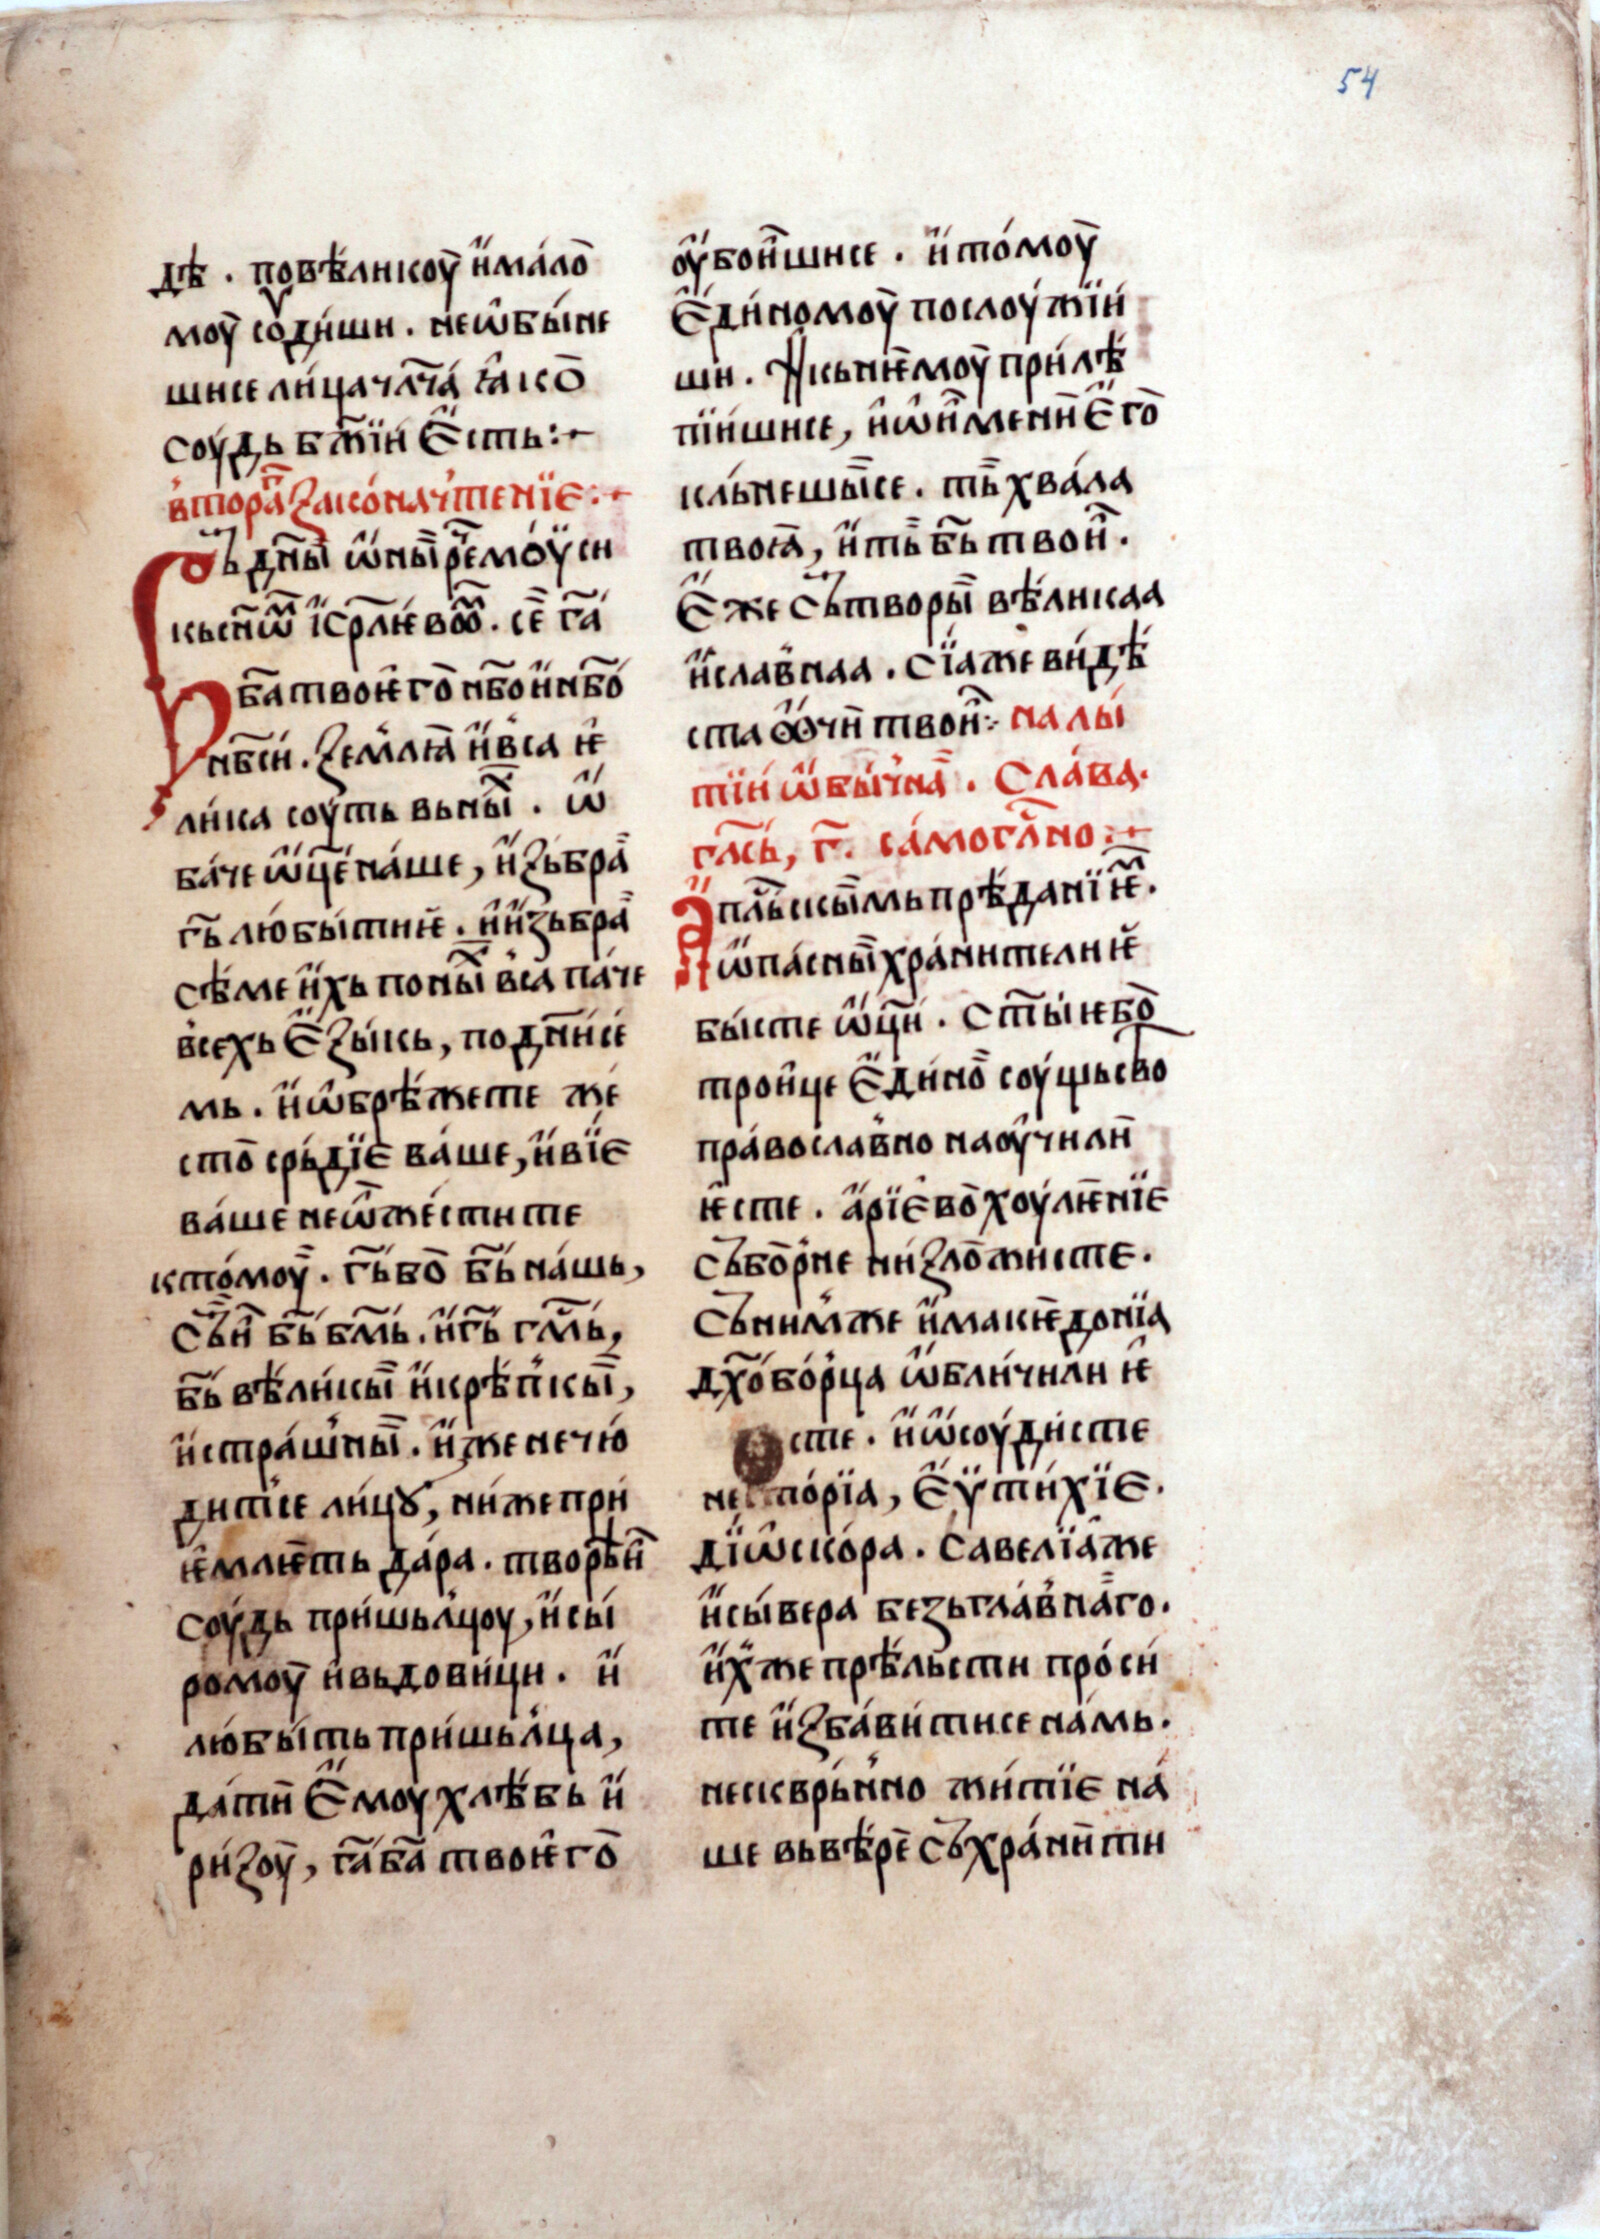 54
дѣ . повѣликоу҄ и҆ма́ло҄
моу҄ со́уди́ши . неѡ҆бы́не
шисе ли́ца чл҃ча́ ꙗ҆ко҄
соу́дь бж҃їи Є҆сть :~
в҆тора҄ꙁако́на ч҆те́нїЄ :~
Въ дн҃ы ѡ҆ны҄ рє҄ мо́ѵ̈си
кьсн҃ѡм҄ і҆сра҃илѥвом҄ . се҄ га҃
ба҃ твоѥ҆го҄ нб҃о и҆ нб҃о́
нб҃си . ꙁемл҆ꙗ и҆ в҆са ѥ҆
ли́ка соу́ть вьны́х . ѡ҆
ба́че ѡ҆ц҃е на́ше , и҆ꙁьбра҄
гь҃ лю́бы́тиѥ . и҆ и҆ꙁьбра҄
сѣ́ме и҆хь по ны́х в҆са па́че
в҆сехь Є҆ꙁы́кь , по дн҃и́се
мь . и҆ ѡ҆брѣ́жете же́
сто҄ срь́дїЄ ва́ше , и҆ вїЄ
ва́ше неѡ҆же́стите
кто́моу҄ . гь҃ бо҄ бь҃ на́шь ,
съи҄ бь҃ бм҃ь . и҆ гь҃ гм҃ь ,
бь҃ вѣ́ли́кы҄ и҆ крѣ́п҆кы҄ ,
и҆ стра́ш҆ны҄ . и҆же не чю́
ди́тсе ли́цꙋ , ни́же при́
ѥ҆млѥть да́ра . творѣ́и҄
соу́дь при́шьл҆цоу , и҆ сы́
ромоу҄ и҆ вьдови́ци . и҆
лю́бы́ть при́шьл҆ца ,
да́ти Є҆моу хлѣ́бь и҆
ри́ꙁоу҄ , га҃ ба҃ твоѥ҆го҄
оу҆бои҆шисе . и҆ то́моу҄
Є҆ди́номоу҄ послоу́жїи́
ши . И кьнѥмоу҄ при́лѣ́
пїи́шисе , и҆ ѡ҆и҆мени Є҆го҄
кль́нешы҄се . ть҄ хва́ла
твоꙗ , и҆ ть҄ бь҃ твои҄ .
Є҆же сътворы҄ вѣ́ликаа
и҆ слав҆наа . сїаже ви́дѣ́
ста ѻ҆чи твои҄ :· на лы́
тїи́ ѡ҆бы́ч҆на҄ . Сла́ва .
гла҃сь , г҃ . са́могл҃но :~
Ап҃ль́скы҄мь прѣ́данїѥм҄ .
ѡ҆па́сны҄ хра́нители ѥ҆
бы́сте ѡ҆ц҃и . ст҃ы́ѥ бо҄
трои҆це Є҆ди́но҄ соу́щьсво
пра́вославно наоу҆чили
ѥ҆сте . а҆рїЄво҄ хоу́лѥнїЄ
събо҄р҆не ни́ꙁло҄жисте .
сънимже и҆ макѥдонїа
дх҃о́бо́рца ѡ҆бли́чили ѥ҆
сте . и҆ ѡ҆соу́ди́сте
не по́рїа , Є҆ѵ̈ти́хїЄ .
дїѡ҆ско́ра . савелїа́же
и҆ сы́вера беꙁьглав҆на҄го .
и҆х҆же прѣ́льсти про́си́
те и҆ꙁба́ви́тисе на́мь .
несквръ́н҆но жи́тїЄ на́
ше вьвѣ́ре҄ съхра́нити